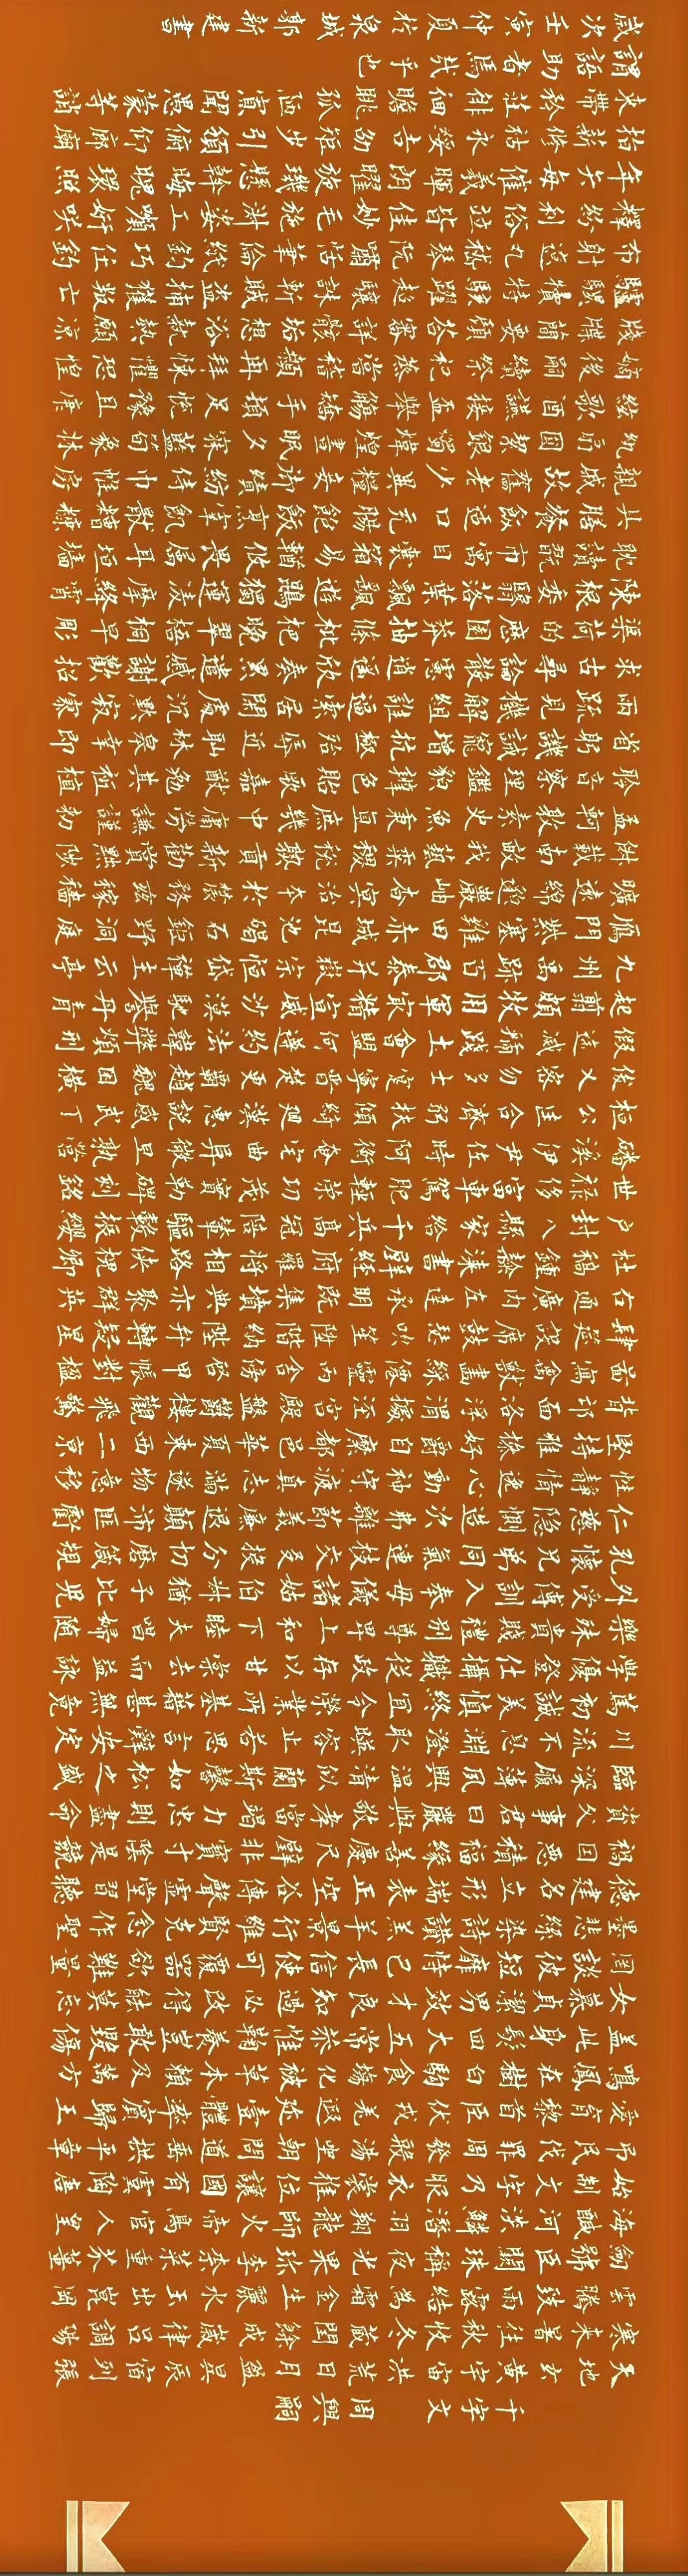 千字文 周興嗣
天地玄黃宇宙洪荒日月盈昃辰宿列張
寒來暑往秋收冬藏閏餘成歲律呂調陽
雲騰致雨露結為霜金生麗水玉出崑岡
劍號巨闕珠稱夜光果珍李柰菜重芥薑
海鹹河淡鱗潛羽翔龍師火帝鳥官人皇
始制文字乃服衣裳推位讓國有虞陶唐
弔民伐罪周發殷湯坐朝問道垂拱平章
愛育黎首臣伏戎羌遐邇壹體率賓歸王
鳴鳳在樹白駒食場化被草木賴及萬方
蓋此身髮四大五常恭惟鞠養豈敢毀傷
女慕貞潔男效才良知過必改得能莫忘
罔談彼短靡恃己長信使可覆器欲難量
墨悲絲染詩讚羔羊景行維賢克念作聖
德建名立形端表正空谷傳聲虛堂習聽
禍因惡積福緣善慶尺璧非寶寸陰是競
資父事君曰嚴與敬孝當竭力忠則盡命
臨深履薄夙興溫清似蘭斯馨如松之盛
川流不息淵澄取暎容止若思言辭安定
篤初誠美慎終宜令榮業所基籍甚無竟
學優登仕攝職從政存以甘棠去而益詠
樂殊貴賤禮別尊卑上和下睦夫唱婦隨
外受傅訓入奉母儀諸姑伯叔猶子比兒
孔懷兄弟同氣連枝交友投分切磨箴規
仁慈隱惻造次弗離節義廉退顛沛匪虧
性靜情逸心動神疲守真志滿逐物意移
堅持雅操好爵自縻都邑華夏東西二京
背邙面洛浮渭據涇宮殿盤鬱樓觀飛驚
圖寫禽獸畫綵僊靈丙舍傍啓甲帳對楹
肆筵設席鼓瑟吹笙陞階納陛弁轉疑星
右通廣內左達承明既集墳典亦聚群英
杜稿鍾隸漆書壁經府羅將相路俠槐卿
戶封八縣家給千兵高冠陪輦驅轂振纓
世祿侈富車駕肥輕策功茂實勒碑刻銘
磻溪伊尹佐時阿衡奄宅曲阜微旦孰營
桓公匡合濟弱扶傾綺迴漢惠說感武丁
俊乂密勿多士寔寧晉楚更霸趙魏困橫
假途滅虢踐土會盟何遵約法韓弊煩刑
起翦頗牧用軍最精宣威沙漠馳譽丹青
九州禹跡百郡秦并嶽宗恒岱禪主云亭
雁門紫塞雞田赤城昆池碣石鉅野洞庭
曠遠綿邈巖岫杳冥治本於農務茲稼穡
俶載南畝我藝黍稷稅熟貢新勸賞黜陟
孟軻敦素史魚秉直庶幾中庸勞謙謹勑
聆音察理鑑貌辨色貽厥嘉猷勉其祗植
省躬譏誡寵增抗極殆辱近恥林皋幸即
兩疏見機解組誰逼索居閑處沉默寂寥
求古尋論散慮逍遙欣奏累遣慼謝歡招
渠荷的歷園莽抽條枇杷晚翠梧桐早彫
陳根委翳落葉飄颻遊鵾獨運凌摩絳霄
耽讀翫市寓目囊箱易輶攸畏屬耳垣墻
具膳餐飯適口充腸飽飫烹宰飢厭糟糠
親戚故舊老少異糧妾御績紡侍巾帷房
紈扇圓潔銀燭煒煌晝眠夕寐藍筍象床
絃歌酒讌接盃舉觴矯手頓足悅豫且康
嫡後嗣續祭祀蒸嘗稽顙再拜悚懼恐惶
牋牒簡要顧答審詳骸垢想浴執熱願涼
驢騾犢特駭躍超驤誅斬賊盜捕獲叛亡
布射遼丸嵇琴阮嘯恬筆倫紙鈞巧任釣
釋紛利俗並皆佳妙毛施淑姿工顰妍笑
年矢每催曦暉朗曜璇璣懸斡晦魄環照
指薪修祜永綏吉劭矩步引領俯仰廊廟
束帶矜莊徘徊瞻眺孤陋寡聞愚蒙等誚
謂語助者焉哉乎也
歲次壬寅仲夏於泉城郭新建書